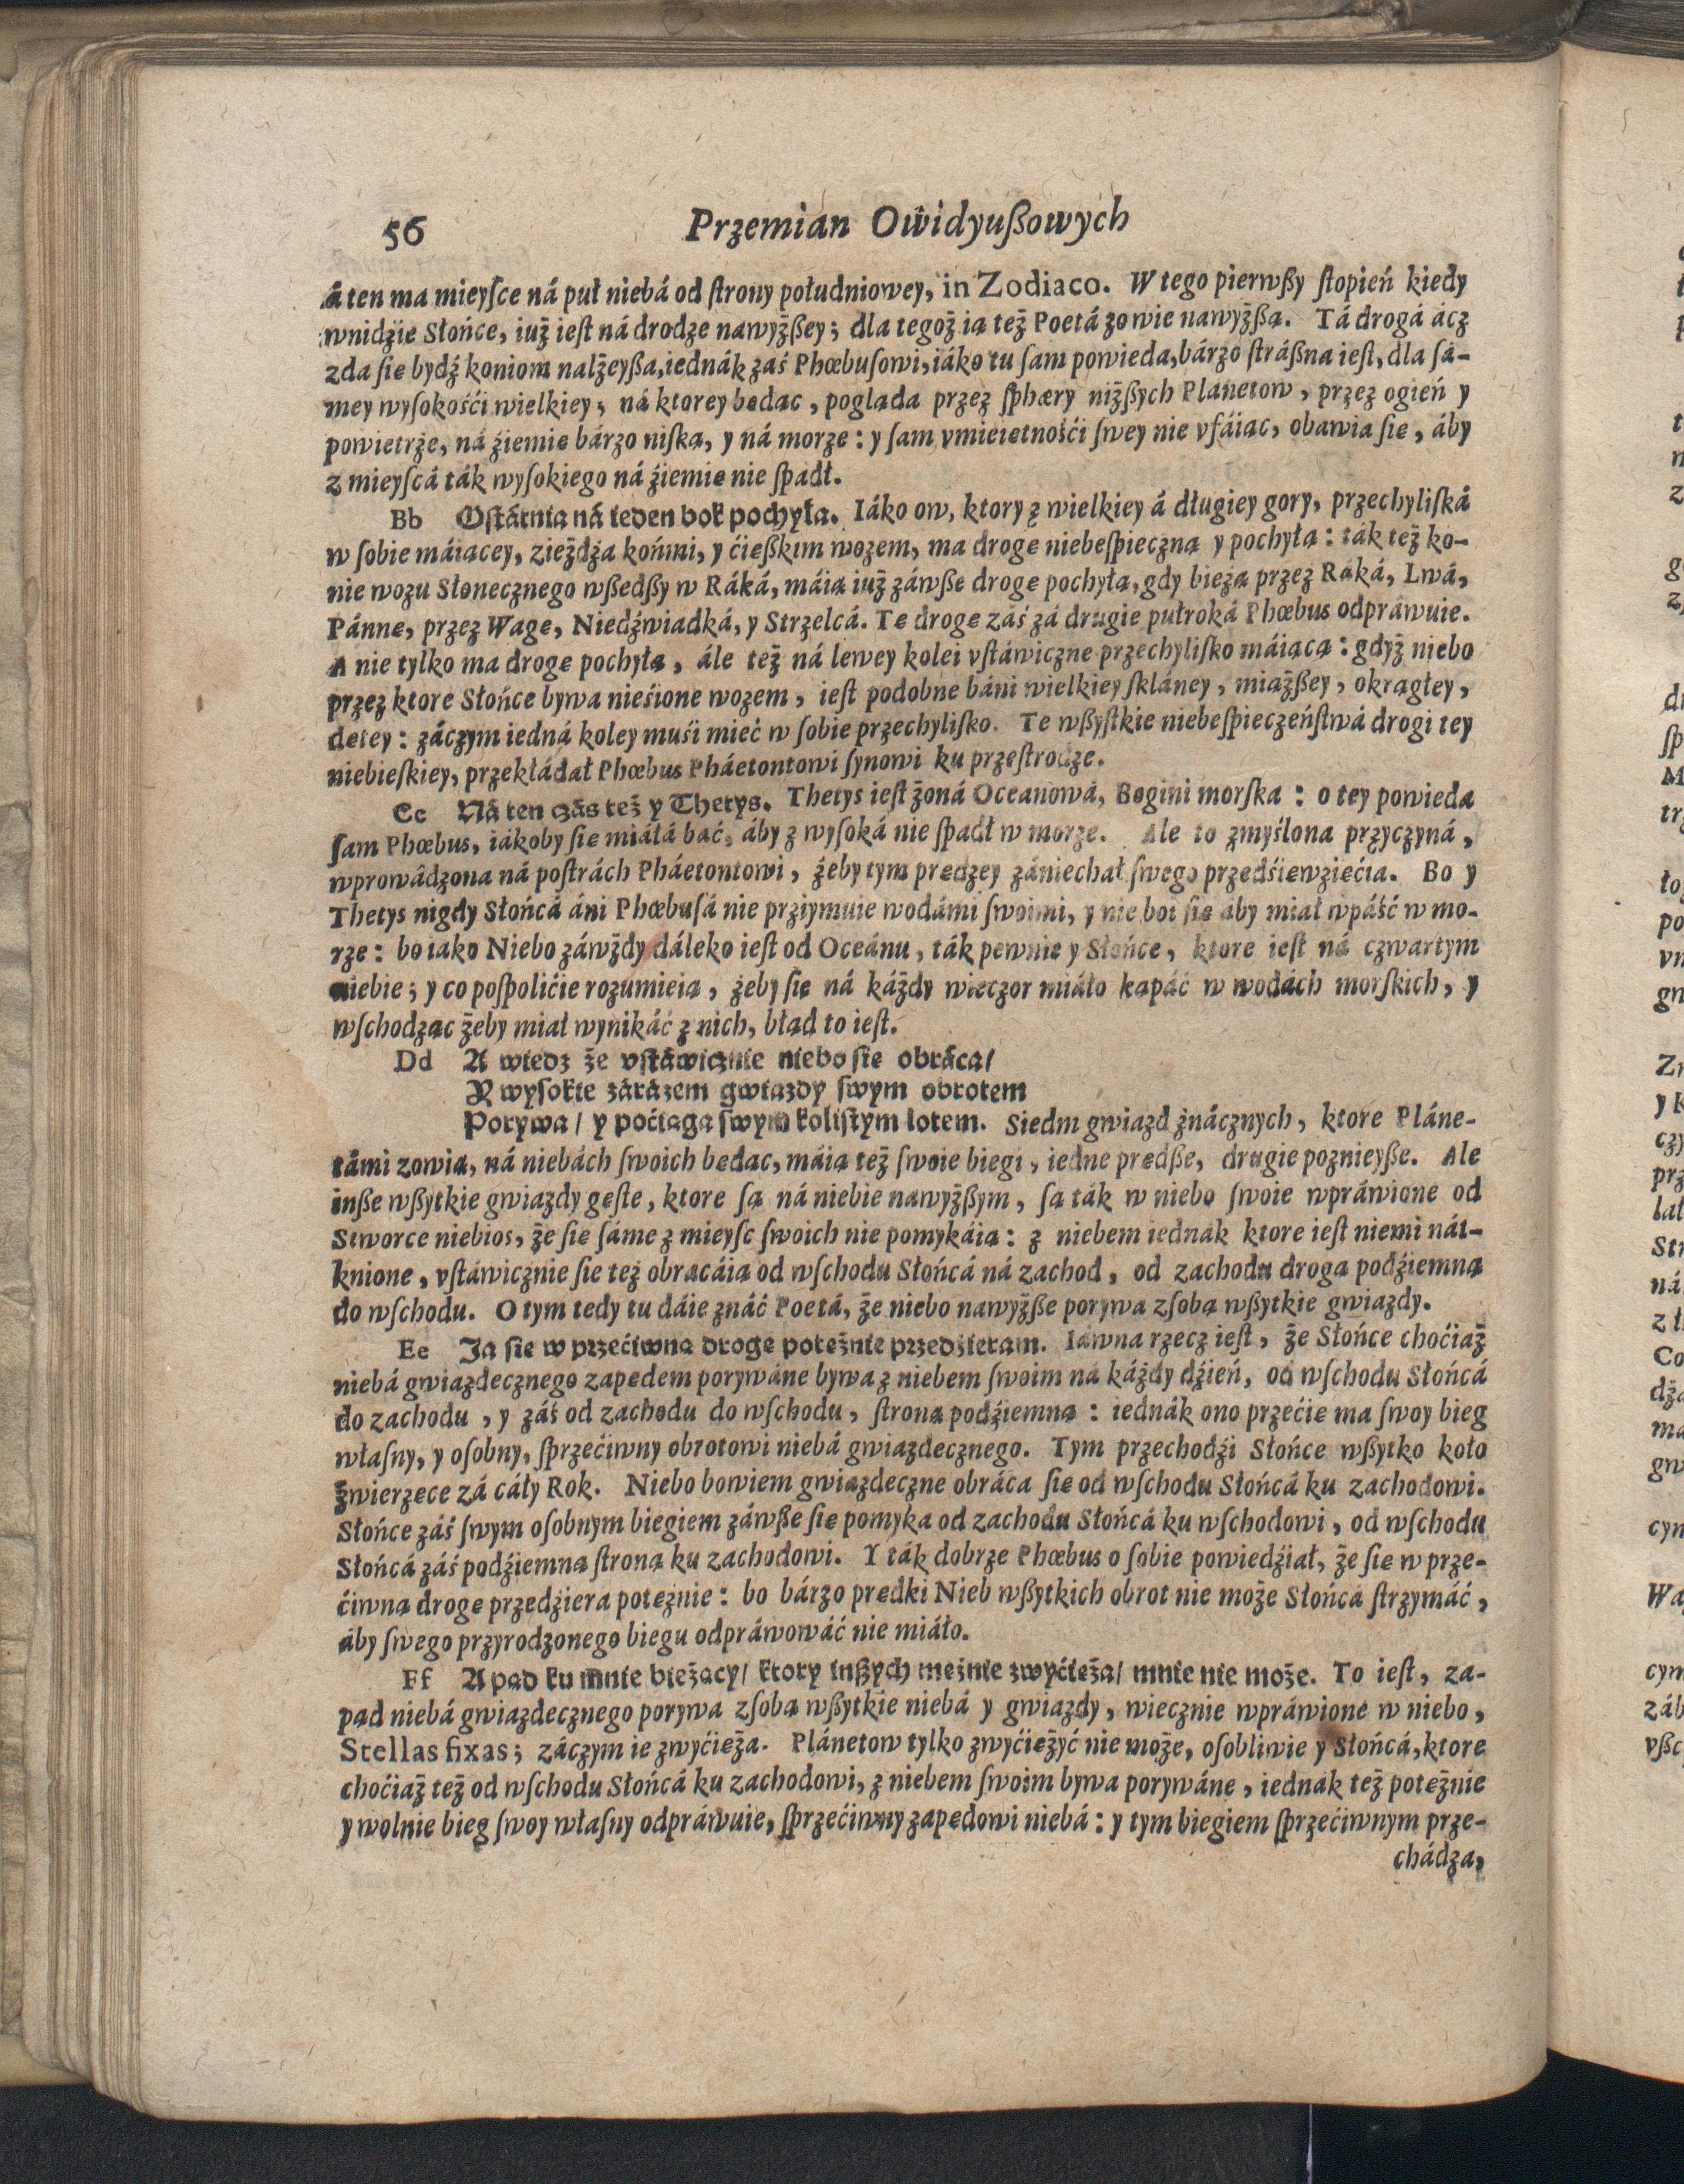 56 Przemian Owidyußowych
á ten ma mieyſce ná puł niebá od ſtrony południowey, in Zodiaco. W tego pierwßy ſtopień kiedy
wnidźie Słońce, iuż ieſt ná drodze nawyżßey; dla tegoż ią też Poetá zowie nawyżßą. Tá drogá ácz
zda ſie bydź koniom nalżeyßa, iednák zaś Phœbuſowi, iáko tu ſam powieda, bárzo ſtráßna ieſt, dla ſá-
mey wyſokośći wielkiey; ná ktorey będąc, pogląda przez ſphæry niżßych Planetow, przez ogień y
powietrze, ná źiemię bárzo niſką, y ná morze: y ſam vmieiętnośći ſwey nie vfáiąc, obawia ſie, áby
z mieyſcá ták wyſokiego ná źiemię nie ſpadł.
Bb Oſtátnia ná ieden bok pochyła. Iáko ow, ktory z wielkiey á długiey gory, przechyliſká
w ſobie máiącey, zieżdża końmi, y ćięßkim wozem, ma drogę niebeſpieczną y pochyłą: ták też ko-
nie wozu Słonecznego wßedßy w Ráká, máią iuż záwße drogę pochyłą, gdy bieżą przez Ráká, Lwá,
Pánnę, przez Wagę, Niedźwiadká, y Strzelcá. Tę drogę záś zá drugie pułroká Phœbus odpráwuie.
A nie tylko ma drogę pochyłą, ále też ná lewey kolei vſtáwiczne przechyliſko máiącą: gdyż niebo
przez ktore Słońce bywa nieśione wozem, ieſt podobne báni wielkiey ſkláney, miążßey, okrągłey,
dętey: záczym iedná koley muśi mieć w ſobie przechyliſko. Te wßyſtkie niebeſpieczeńſtwá drogi tey
niebieſkiey, przekłádał Phœbus Pháetontowi ſynowi ku przeſtrodze.
Cc Ná ten czás też y Thetys. Thetys ieſt żoná Oceanowá, Bogini morſka: o tey powieda
ſam Phœbus, iákoby ſie miáłá bać, áby z wyſoká nie ſpadł w morze. Ale to zmyślona przyczyná,
wprowádzona ná poſtrách Pháetontowi, żeby tym prędzey zániechał ſwego przedśięwźięćia. Bo y
Thetys nigdy Słońcá áni Phœbuſá nie przyimuie wodámi ſwoimi, y nie boi ſie áby miał wpáść w mo-
rze: bo iako Niebo záwżdy dáleko ieſt od Oceánu, ták pewnie y Słońce, ktore ieſt ná czwartym
niebie; y co poſpolićie rozumieią, żeby ſię ná káżdy wieczor miáło kąpáć w wodách morſkich, y
wſchodząc żeby miał wynikáć z nich, błąd to ieſt.
Dd A wiedz że vſtáwicznie niebo ſie obráca/
Y wyſokie zárázem gwiazdy ſwym obrotem
Porywa/ y poćiąga ſwym koliſtym lotem. Siedm gwiazd znácznych, ktore Pláne-
támi zowią, ná niebách ſwoich będąc, máią też ſwoie biegi, iedne prędße, drugie poznieyße. Ale
inße wßytkie gwiazdy gęſte, ktore ſą ná niebie nawyżßym, ſą ták w niebo ſwoie wpráwione od
Stworce niebios, że ſie ſáme z mieyſc ſwoich nie pomykáią: z niebem iednák ktore ieſt niemi nát-
knione, vſtáwicznie ſie też obracáią od wſchodu Słońcá ná zachod, od zachodu drogą podźiemną
do wſchodu. O tym tedy tu dáie znáć Poetá, że niebo nawyżße porywa z ſobą wßytkie gwiazdy.
Ee Ja ſie w przećiwną drogę potężnie przedzieram. Iáwna rzecz ieſt, że Słońce choćiaż
niebá gwiazdecznego zapędem porywáne bywa z niebem ſwoim ná káżdy dźień, od wſchodu Słońcá
do zachodu, y záś od zachodu do wſchodu, ſtroną podźiemną: iednák ono przećie ma ſwoy bieg
własny, y oſobny, ſprzećiwny obrotowi niebá gwiazdecznego. Tym przechodźi Słońce wßytko koło
źwierzęce zá cáły Rok. Niebo bowiem gwiazdeczne obráca ſie od wſchodu Słońcá ku zachodowi.
Słońce záś ſwym oſobnym biegiem záwße ſie pomyka od zachodu Słońcá ku wſchodowi, od wſchodu
Słońcá záś podźiemną ſtroną ku zachodowi. Y ták dobrze Phœbus o ſobie powiedźiał, że ſie w prze-
ćiwną drogę przedźiera potężnie: bo bárzo prędki Nieb wßytkich obrot nie może Słońcá ſtrzymáć,
áby ſwego przyrodzonego biegu odpráwowáć nie miáło.
Ff A pąd ku mnie bieżący/ ktory inßych mężnie zwyćięża/ mnie nie może. To ieſt, zá-
pąd niebá gwiazdecznego porywa z ſobą wßytkie niebá y gwiazdy, wiecznie wpráwione w niebo,
Stellas fixas; záczym ie zwyćięża. Plánetow tylko zwyćiężyć nie może, oſobliwie y Słońcá, ktore
choćiaż też od wſchodu Słońcá ku zachodowi, z niebem ſwoim bywa porywáne, iednák też potężnie
y wolnie bieg ſwoy własny odpráwuie, ſprzećiwny zapędowi niebá: y tym biegiem ſprzećiwnym prze-
chádza,